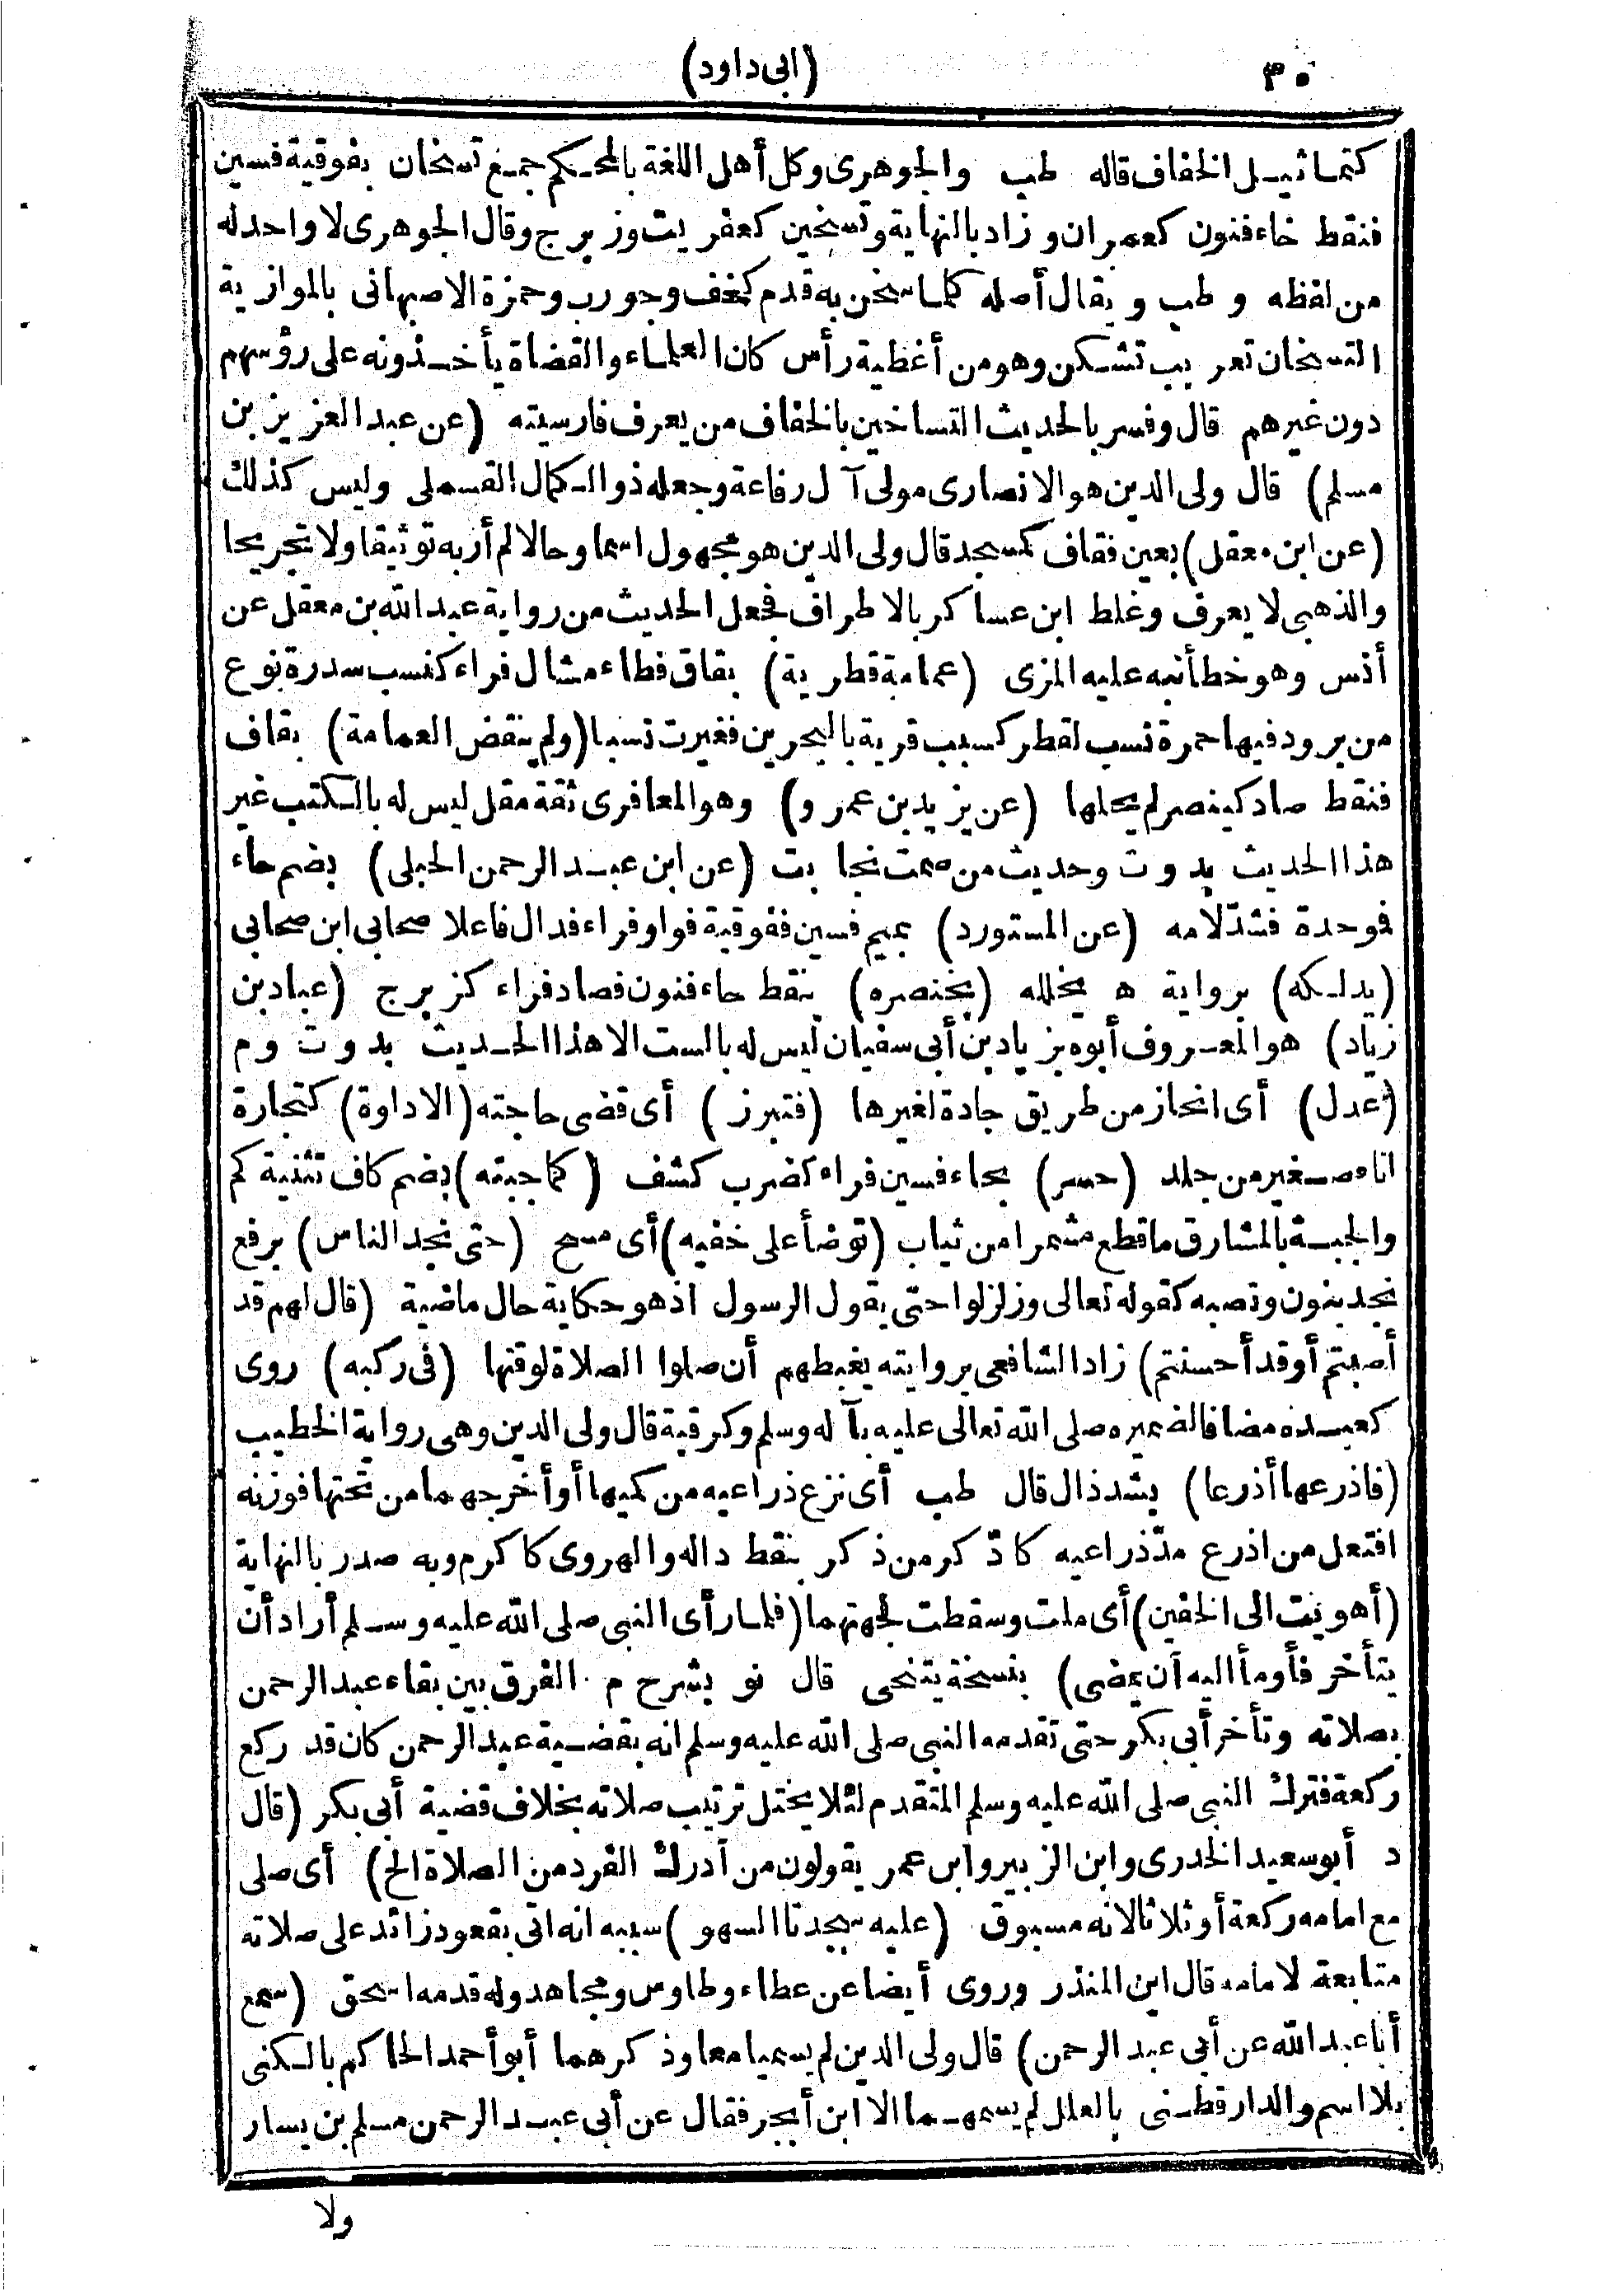 ٣٠
(ابى داود)
كتماثيل الخفاف قاله طب والجوهرى وكل أهل اللغة بالمحكم جمع تسخان بفوقية فسين
فنقط خاء فنون كعمران وزاد بالنهاية وتسخين كعفريت وزبرج وقال الجوهرى لا واحد له
من لفظه و طب ويقال أصله كلما سخن به قدم كخف وجورب وحمزة الاصبهانى بالموازية
التسخان تعريب تشكن وهو من أغطية رأس كان العلماء والقضاة يأخذونه على رؤسهم
دون غيرهم قال وفسر بالحديث التساخين بالخفاف من يعرف فارسيته (عن عبد العزيز بن
مسلم) قال ولى الدين هو الانصارى مولى آل رفاعة وجعله ذو الكمال القسملى وليس كذلك
(عن ابن معقل) بعين فقاف كمسجد قال ولى الدين هو مجهول اسما وحالا لم أر به توثيقا ولا تجريحا
والذهبى لا يعرف وغلط ابن عساكر بالاطراف فجعل الحديث من رواية عبد الله بن معقل عن
أنس وهو خطأ نبه عليه المزى (عمامة قطرية) بقاق فطاء مشال فراء كنسب سدرة نوع
من برود فيها حمرة نسب لقطر كسبب قرية بالبحرين فغيرت نسبا (ولم ينقض العمامة) بقاف
فنقط صاد كينصر لم يحلها (عن يزيد بن عمرو) وهو المعافرى ثقة مقل ليس له بالكتب غير
هذا الحديث بد وت وحديث من صمت نجا بت (عن ابن عبد الرحمن الحبلى) بضم حاء
فوحدة فشدّ لامه (عن المستورد) بميم فسين ففوقية فواو فراء فدال فاعلا صحابى ابن صحابى
(يدلكه) برواية ه يخلله (بخنصره) بنقط خاء فنون فصاد فراء كزبرج (عباد بن
زياد) هو المعروف أبوه بزياد بن أبى سفيان ليس له بالست الا هذا الحديث بد وت وم
(عدل) أى انحاز من طريق جادة لغيرها (فتبرز) أى قضى حاجته (الاداوة) كتجارة
اناء صغير من جلد (حسر) بحاء فسين فراء كضرب كشف (كما جبته) بضم كاف تثنية كم
والجبة بالمشارق ما قطع مشمرا من ثياب (توضأ على خفيه) أى مسح (حتى نجد الناس) برفع
نجد بنون ونصبه كقوله تعالى وزلزلوا حتى يقول الرسول اذ هو حكاية حال ماضية (قال لهم قد
أصبتم أو قد أحسنتم) زاد الشافعى بروايته يغبطهم أن صلوا الصلاة لوقتها (فى ركبه) روى
كعبده مضافا لضميره صلى الله تعالى عليه بآله وسلم وكرقبة قال ولى الدين وهى رواية الخطيب
(فاذرعها أذرعا) بشد ذال قال طب أى نزع ذراعيه من كميها أو أخرجهما من تحتها فوزنه
افتعل من اذرع مدّ ذراعيه كادّكر من ذكر بنقط داله والهروى كاكرم وبه صدر بالنهاية
(أهويت الى الخفين) أى ملت وسقطت لجهتهما (فلما رأى النبى صلى الله عليه وسلم أراد أن
يتأخر فأومأ اليه ان يمضى) بنسخة يتنحى قال نو بشرح م الفرق بين بقاء عبد الرحمن
بصلاته وتأخر أبى بكر حتى تقدمه النبى صلى الله عليه وسلم انه بقضية عبد الرحمن كان قد ركع
ركعة فترك النبى صلى الله عليه وسلم التقدم لئلا يختل ترتيب صلاته بخلاف قضية أبى بكر (قال
د أبو سعيد الخدرى وابن الزبير وابن عمر يقولون من أدرك الفرد من الصلاة الخ) أى صلى
مع امامه ركعة أو ثلاثا لانه مسبوق (عليه سجدتا السهو) سببه انه اتى بقعود زائد على صلاته
متابعة لامامه قال ابن المنذر وروى أيضا عن عطاء وطاوس ومجاهد وله قدمه اسحق (سمع
أبا عبد الله عن أبى عبد الرحمن) قال ولى الدين لم يسميا معا وذكرهما أبو أحمد الحاكم بالكنى
بلا اسم والدارقطنى بالعلل لم يسمهما الا ابن أبجر فقال عن أبى عبد الرحمن مسلم بن يسار
ولا